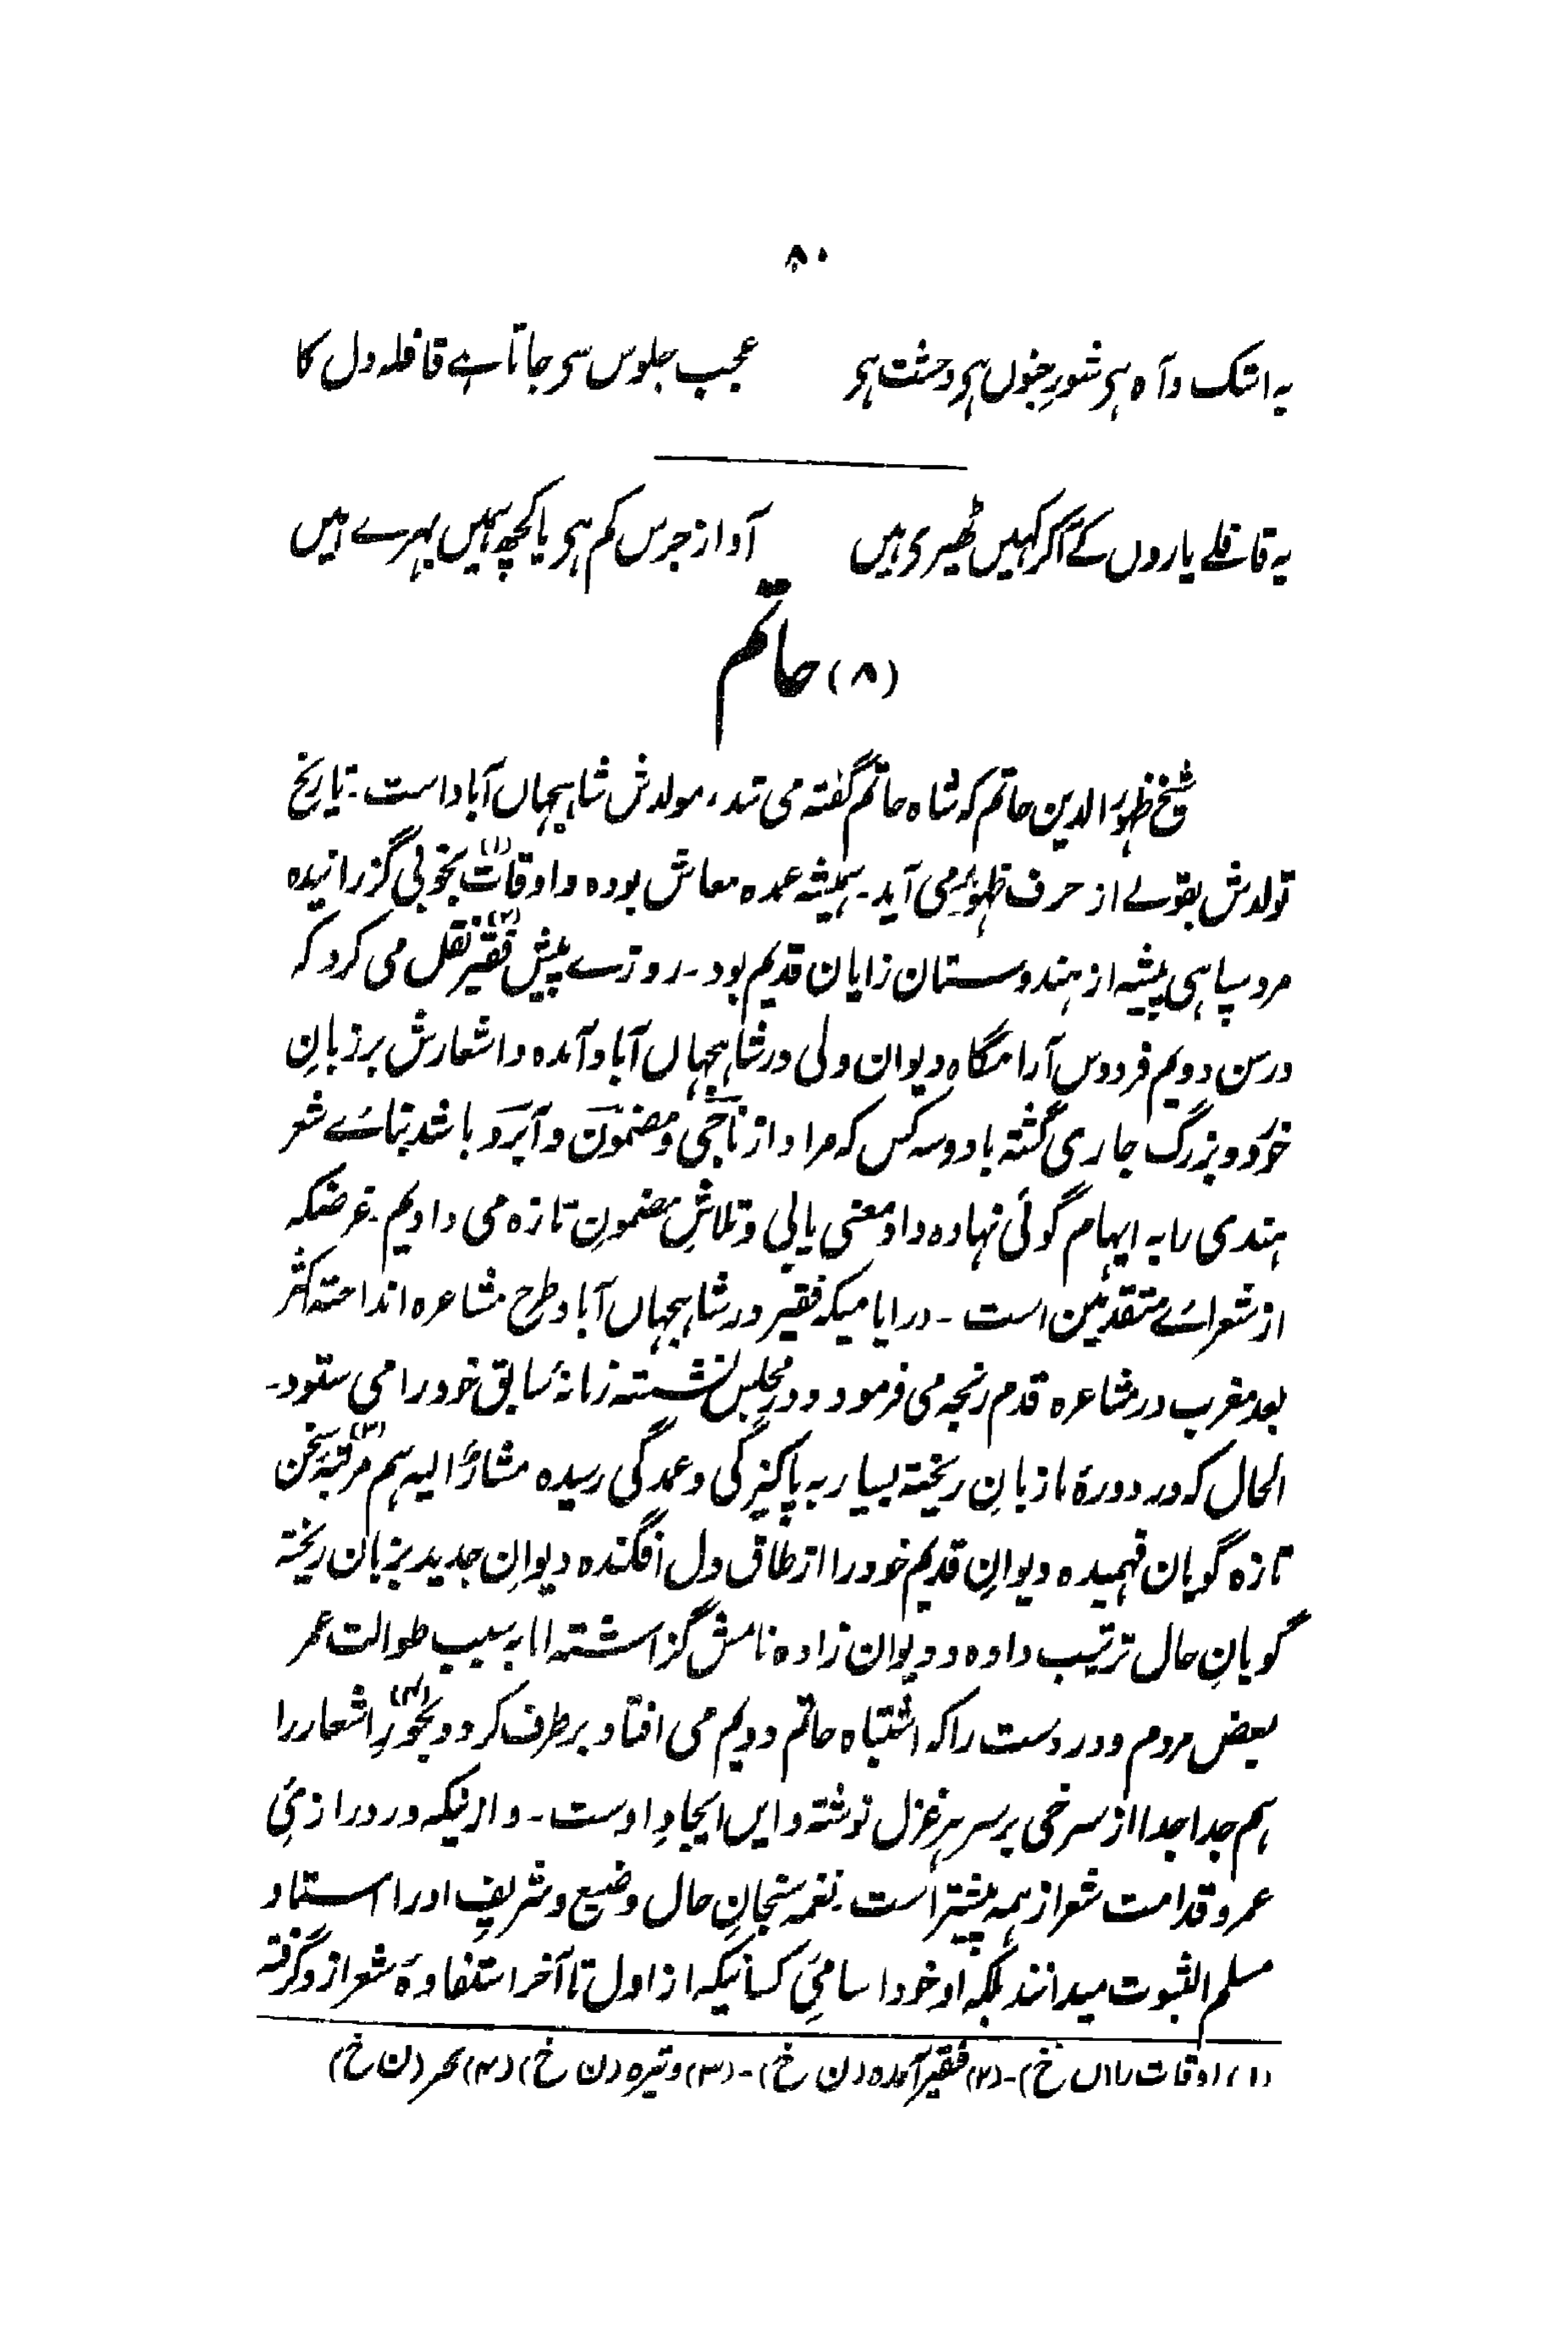 ۸۰
یہ اشک و آہ ہی شورِ جنوں ہی وحشت ہی عجب جلوس سی جاتا ہے قافلہ دل کا
یہ قافلے یاروں کے اگر کہیں ٹھیری ہیں آواز جرس کم ہی یا کچھ ہمیں بہرے ہیں
(۸) حاتم
شیخ ظہور الدین حاتم کہ شاہ حاتم گفتہ می شد، مولدش شاہجہاں آباد است۔ تاریخ
تولدش بقولے از حرف ظہور می آید۔ ہمیشہ عمدہ معاش بودہ و اوقات(۱) بخوبی گزرانیدہ
مرد سپاہی پیشہ از ہندوستان زایان قدیم بود۔ روزے پیش فقیر(۲) نقل می کرد کہ
در سن دویم فردوس آرامگاہ دیوان ولی در شاہجہاں آباد آمدہ و اشعارش بر زبانِ
خرد و بزرگ جاری گشتہ با دو سہ کس کہ مراد از ناجی و مضمون و آبرو باشد بنائے شعر
ہندی را بہ ایہام گوئی نہادہ داد معنی یابی و تلاشِ مضمونِ تازہ می دادیم۔ غرضکہ
از شعرائے متقدمین است۔ در ایامیکہ فقیر در شاہجہاں آباد طرح مشاعرہ انداختہ اکثر
بعد مغرب در مشاعرہ قدم رنجہ می فرمود و در مجلس نشستہ زمانۂ سابق خود را می ستود۔
الحال کہ در دورۂ ما زبانِ ریختہ بسیار بہ پاکیزگی و عمدگی رسیدہ مشارٌ الیہ ہم مرتبۂ(۳) سخن
تازہ گویان فہمیدہ دیوانِ قدیم خود را از طاق دل افگندہ دیوانِ جدید بزبان ریختہ
گویانِ حال ترتیب دادہ و دیوان زادہ نامش گزاشتہ اما بہ سبب طوالت عمر
بعض مردم دور دست را کہ اشتباہ حاتم دویم می افتاد برطرف کرد و بحور(۴) اشعار را
ہم جدا جدا از سرخی بر سر ہر غزل نوشتہ و ایں ایجادِ اوست۔ و ازنیکہ در درازئِ
عمر و قدامت شعر از ہمہ پیشتر است۔ نغمہ سنجانِ حال وضیع و شریف او را استاد
مسلم الثبوت میدانند بلکہ او خود اسامئِ کسانیکہ از اول تا آخر استفادۂ شعر ازو گرفتہ
(۱) اوقات را (ن خ)۔ (۲) فقیر آمدہ (ن خ)۔ (۳) وتیرہ (ن خ) (۴) بحر (ن خ)